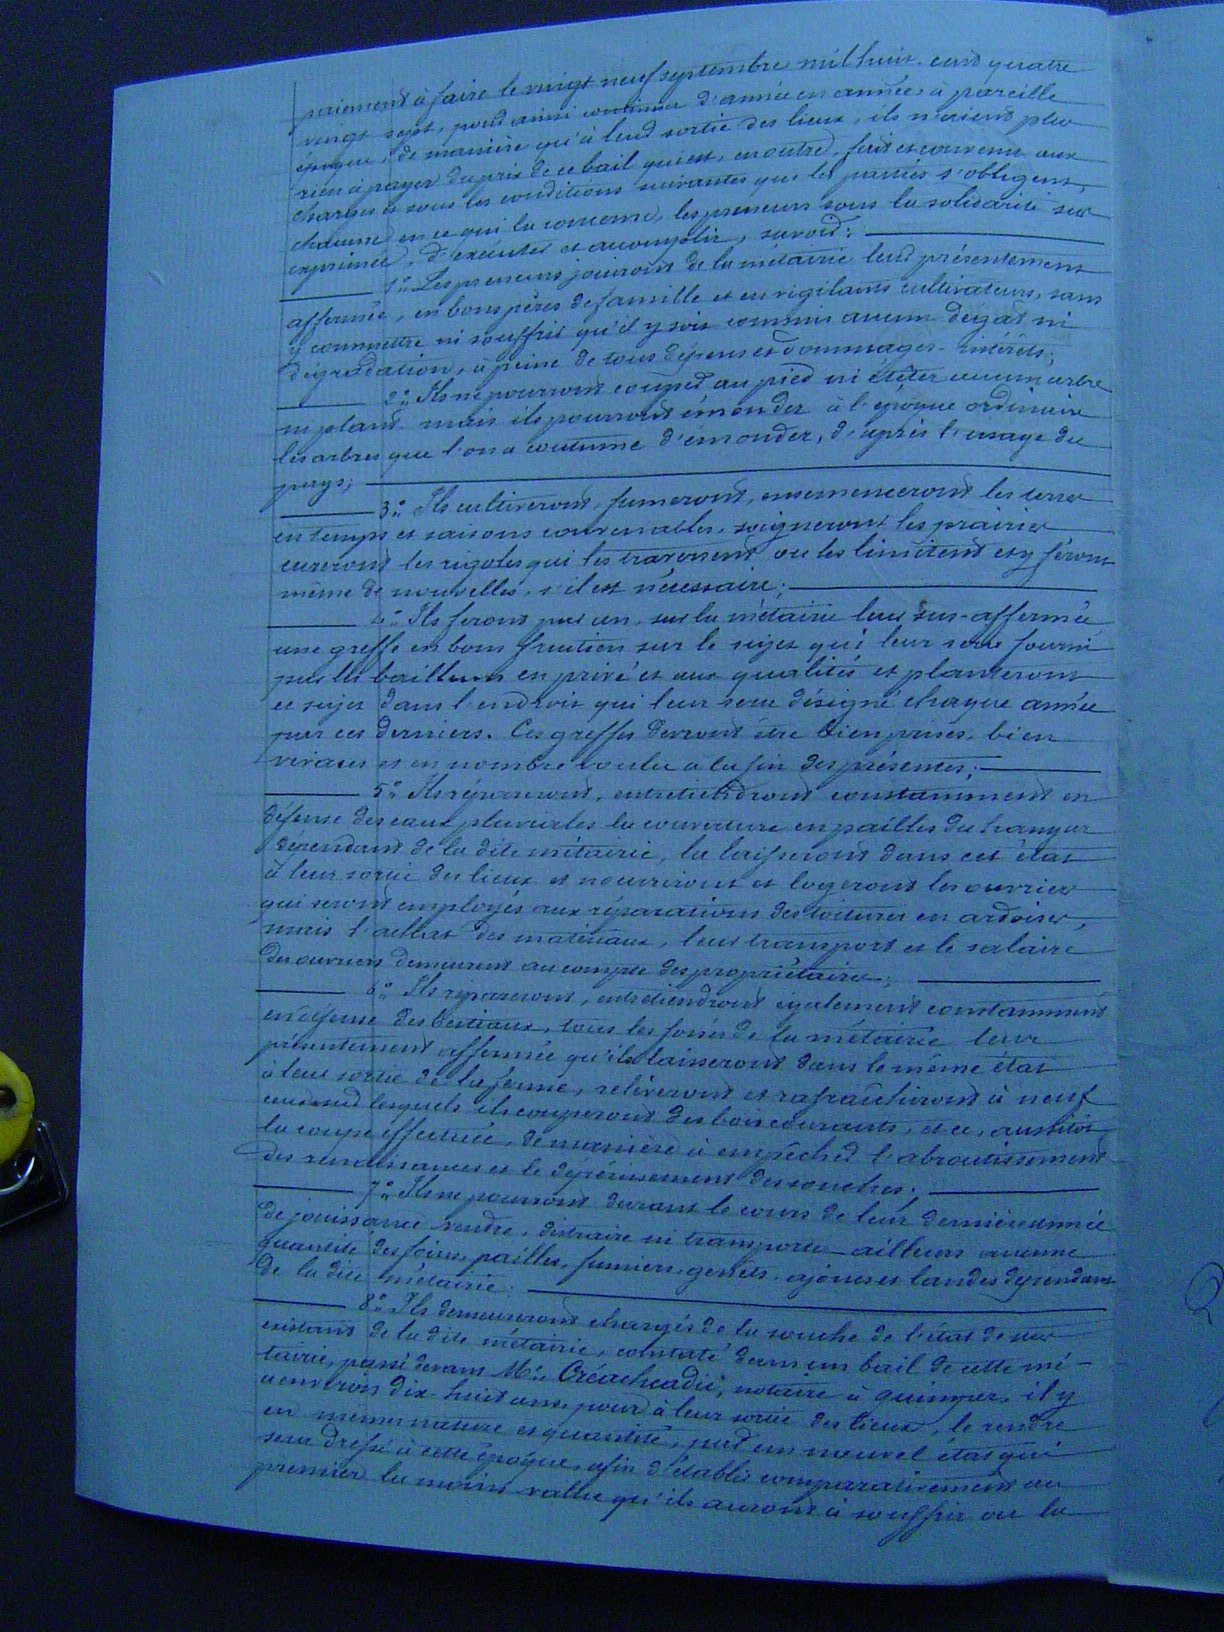 paiement à faire le vingt neuf septembre mil huit cent quatre
vingt sept, pour ainsi continuer d'année en année, à pareille
époque, de manière qu'à leur sortie des lieux, ils n'aient plus
rien à payer du prix de ce bail qui est, en outre, fait et convenu aux
charges et sous les conditions suivantes que les parties s'obligent,
chacune en ce qui la concerne, les preneurs sous la solidarité sus
exprimée, d'exécuter et accomplir, savoir:
1° Les preneurs jouiront de la métairie leur présentement
affermée, en bons pères de famille et en vigilants cultivateurs, sans
y commettre ni souffrir qu'il y soit commis aucun dégât ni
dégradation, à peine de tous dépens et dommages-intérêts;
2° Ils ne pourront couper au pied ni étêter aucun arbre
ni plant mais ils pourront émonder à l'époque ordinaire
les arbres que l'on a coutume d'émonder, d'après l'usage du
pays;
3° Ils cultiveront, fumeront, ensemenceront les terres
en temps et saisons convenables, soigneront les prairies
cureront les rigoles qui les traversent ou les limitent et y feront
même de nouvelles, s'il est nécessaire;
4° Ils feront par an, sur la métairie leur sus-affermée
une greffe en bons fruitiers sur le sujet qui leur sera fourni
par les bailleurs en privé et aux qualités et planteront
ce sujet dans l'endroit qui leur sera désigné chaque année
par ces derniers. Ces greffes devront être bien prises, bien
vivaces et en nombre voulu à la fin des présentes;
5° Ils répareront, entretiendront constamment en
défense des eaux pluviales la couverture en pailles du hangar
dépendant de la dite métairie, la laisseront dans cet état
à leur sortie des lieux et nourriront et logeront les ouvriers
qui seront employés aux réparations des toitures en ardoises,
mais l'achat des matériaux, leur transport et le salaire
des ouvriers demeurent au compte des propriétaires;
6° Ils répareront, entretiendront également constamment
en défense des bestiaux, tous les fossés de la métairie leur
présentement affermée qu'ils laisseront dans le même état
à leur sortie de la ferme, relèveront et rafraîchiront à neuf
ceux sur lesquels ils couperont des bois courants, et ce, aussitôt
la coupe effectuée, de manière à empêcher l'abroutissement
des renaissances et le dépérissement des souches;
7° Ils ne pourront durant le cours de leur dernière année
de jouissance vendre, distraire ni transporter ailleurs aucune
quantité des foins, pailles, fumiers, genêts, ajoncs et landes dépendant
de la dite métairie.
8° Ils demeureront chargés de la souche de l'état de stus
existant de la dite métairie, constaté dans un bail de cette mé-
tairie, passé devant Me Créachcadic, notaire à Quimper, il y
a environ dix-huit ans, pour à leur sortie des lieux, le rendre
en même nature et quantité, par un nouvel état qui
sera dressé à cette époque, afin d'établir comparativement au
premier la moins value qu'ils auront à souffrir ou la